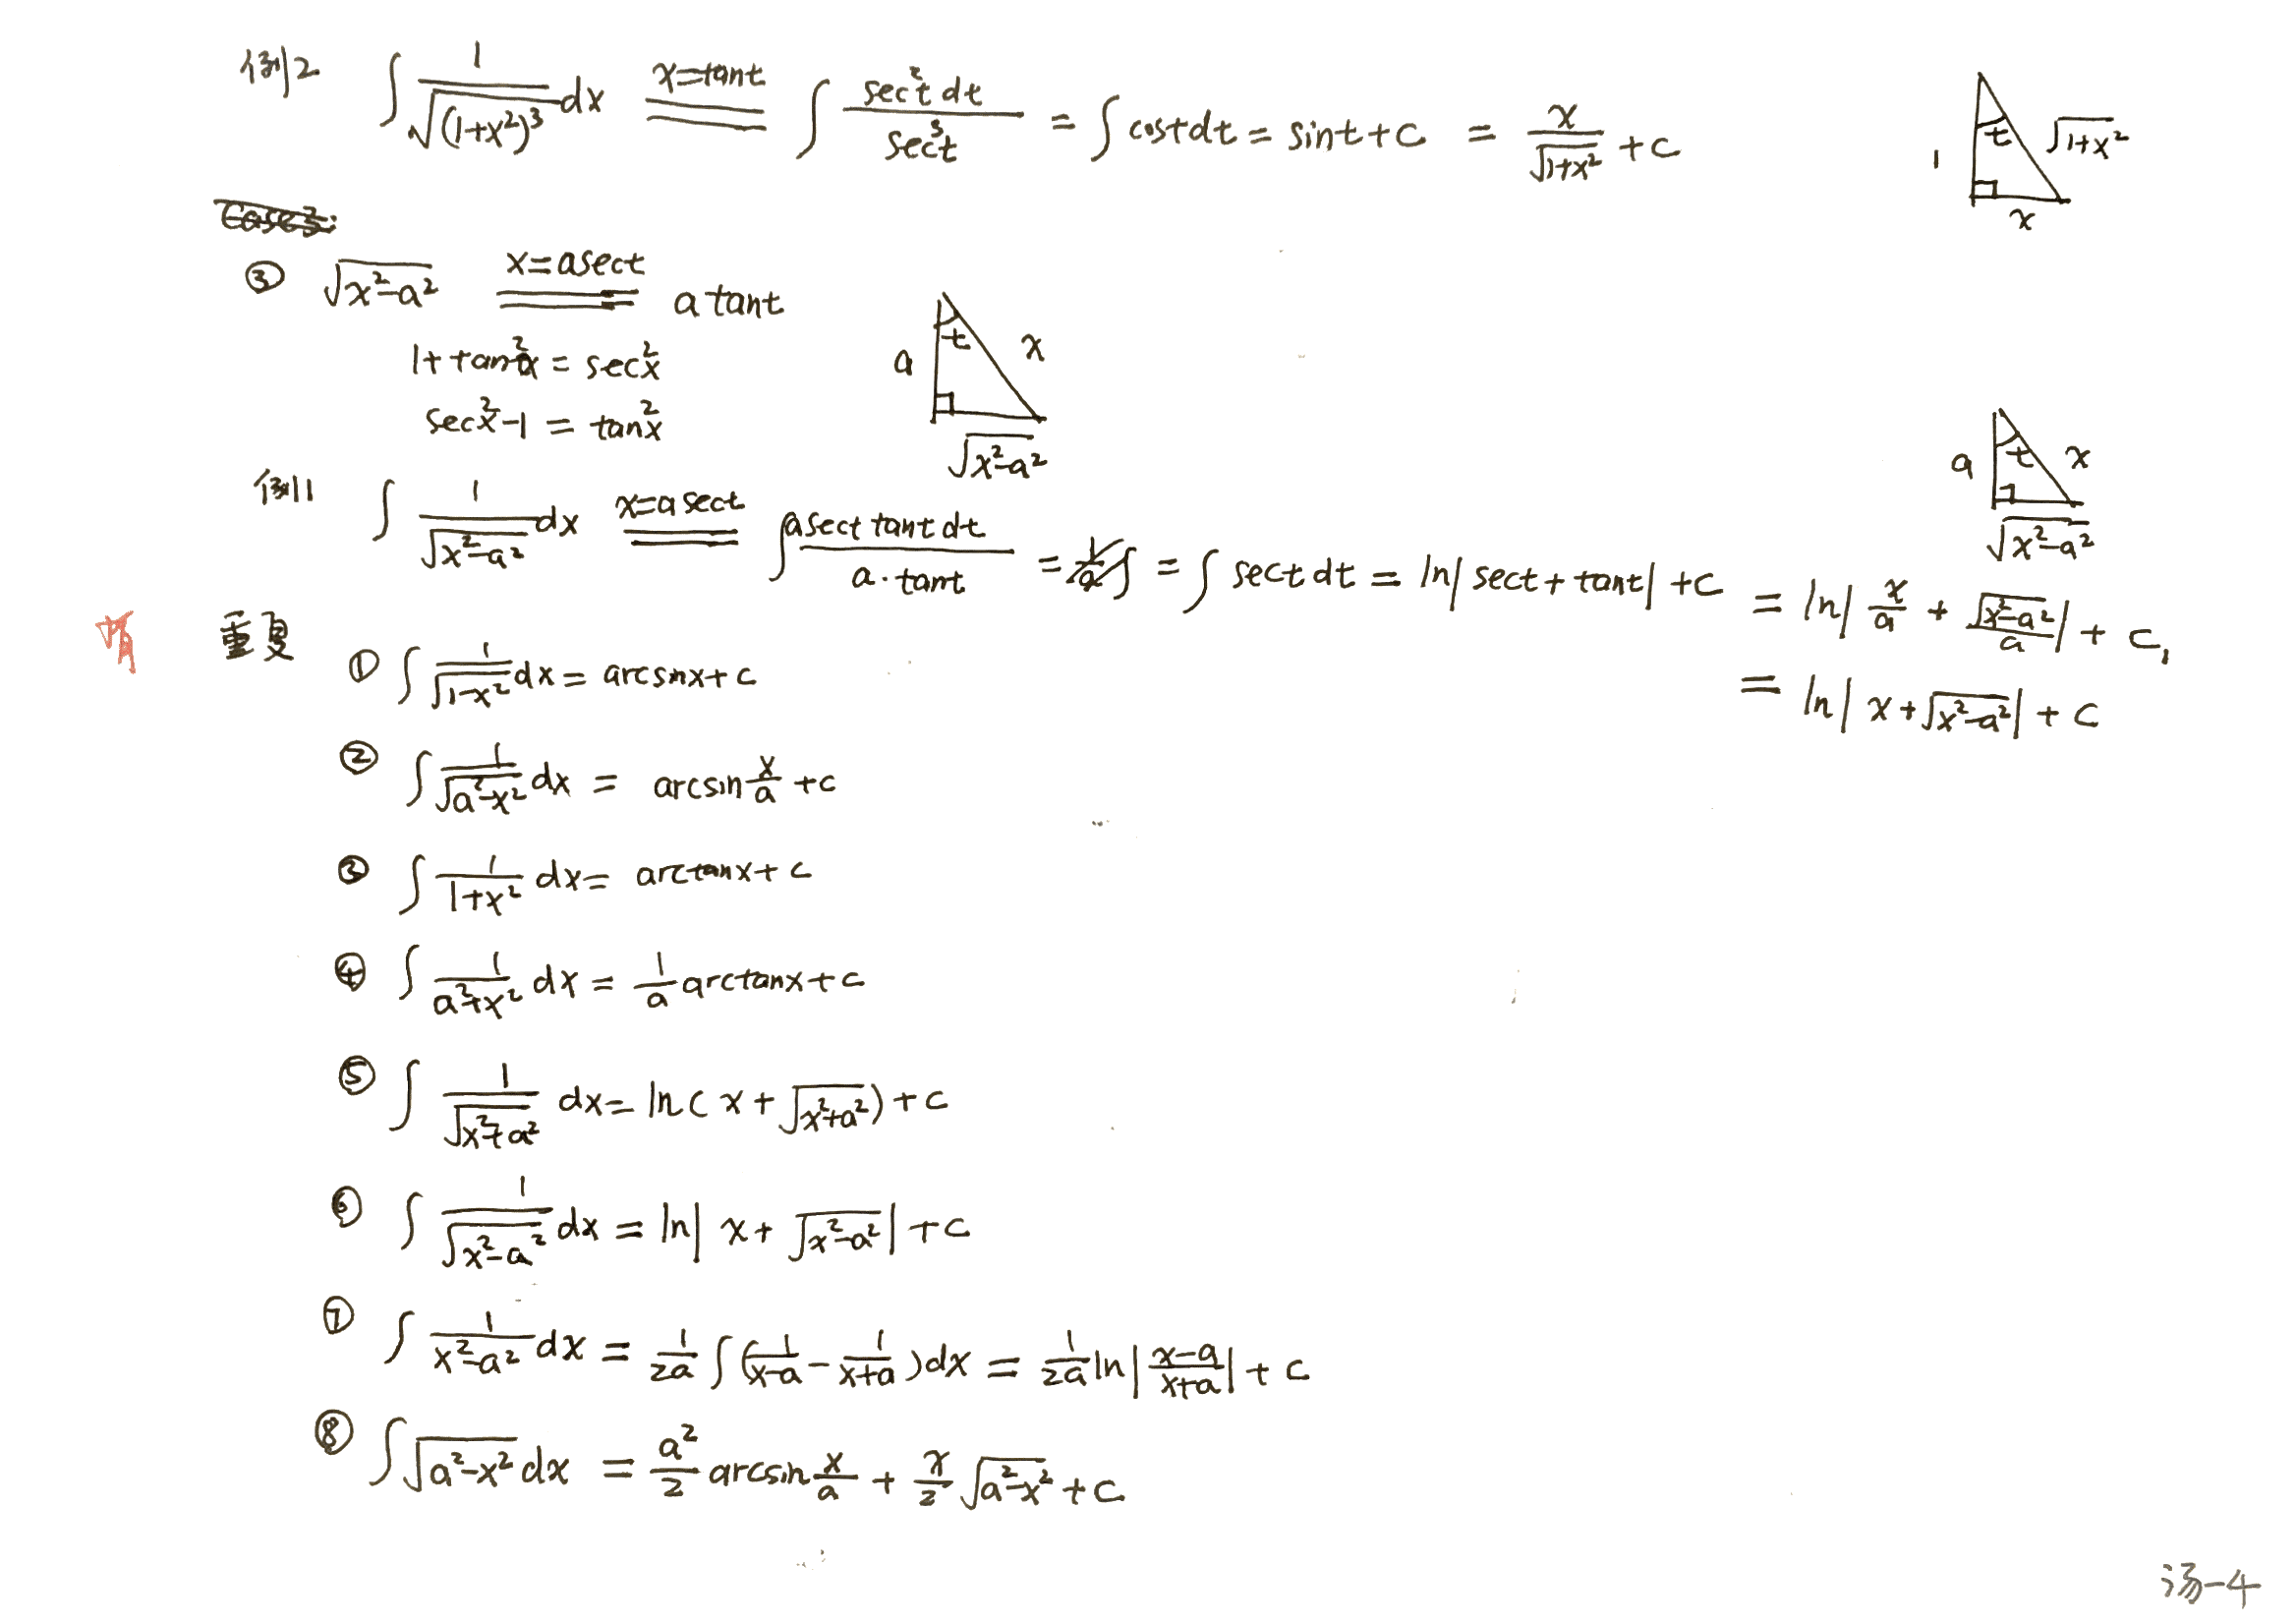 例2 ∫ 1/√(1+x²)³ dx x=tant ∫ sec²t dt / sec³t = ∫ cost dt = sint + c = x/√(1+x²) + c
1 t √(1+x²) x
Case 3:
③ √(x²-a²) x=asect a tant
1+tan²x = sec²x
sec²x-1 = tan²x
a t x √(x²-a²)
例1 ∫ 1/√(x²-a²) dx x=a sect ∫ a sect tant dt / a·tant = 1/a ∫ = ∫ sect dt = ln|sect+tant| + c = ln|x/a + √(x²-a²)/a| + c₁
= ln|x+√(x²-a²)| + c
a t x √(x²-a²)
重复
① ∫ 1/√(1-x²) dx = arcsinx + c
② ∫ 1/√(a²-x²) dx = arcsin x/a + c
③ ∫ 1/(1+x²) dx = arctanx + c
④ ∫ 1/(a²+x²) dx = 1/a arctanx + c
⑤ ∫ 1/√(x²+a²) dx = ln(x+√(x²+a²)) + c
⑥ ∫ 1/√(x²-a²) dx = ln|x+√(x²-a²)| + c
⑦ ∫ 1/(x²-a²) dx = 1/2a ∫ (1/(x-a) - 1/(x+a)) dx = 1/2a ln|(x-a)/(x+a)| + c
⑧ ∫ √(a²-x²) dx = a²/2 arcsin x/a + x/2 √(a²-x²) + c
汤-4